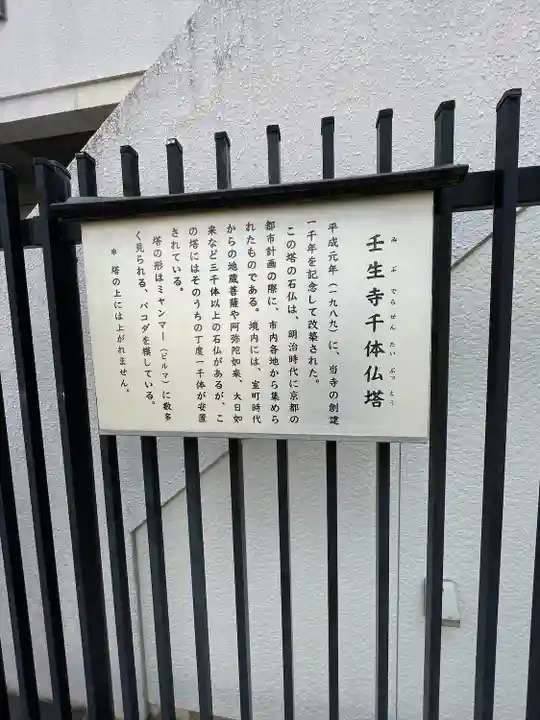 壬生寺千体仏塔
みぶでらせんたいぶっとう
平成元年(一九八九)に、当寺の創建
一千年を記念して改築された。
この塔の石仏は、明治時代に京都の
都市計画の際に、市内各地から集めら
れたものである。境内には、室町時代
からの地蔵菩薩や阿弥陀如来、大日如
来など三千体以上の石仏があるが、こ
の塔にはそのうちの丁度一千体が安置
されている。
塔の形はミャンマー(ビルマ)に数多
く見られる、パコダを模している。
* 塔の上には上がれません。